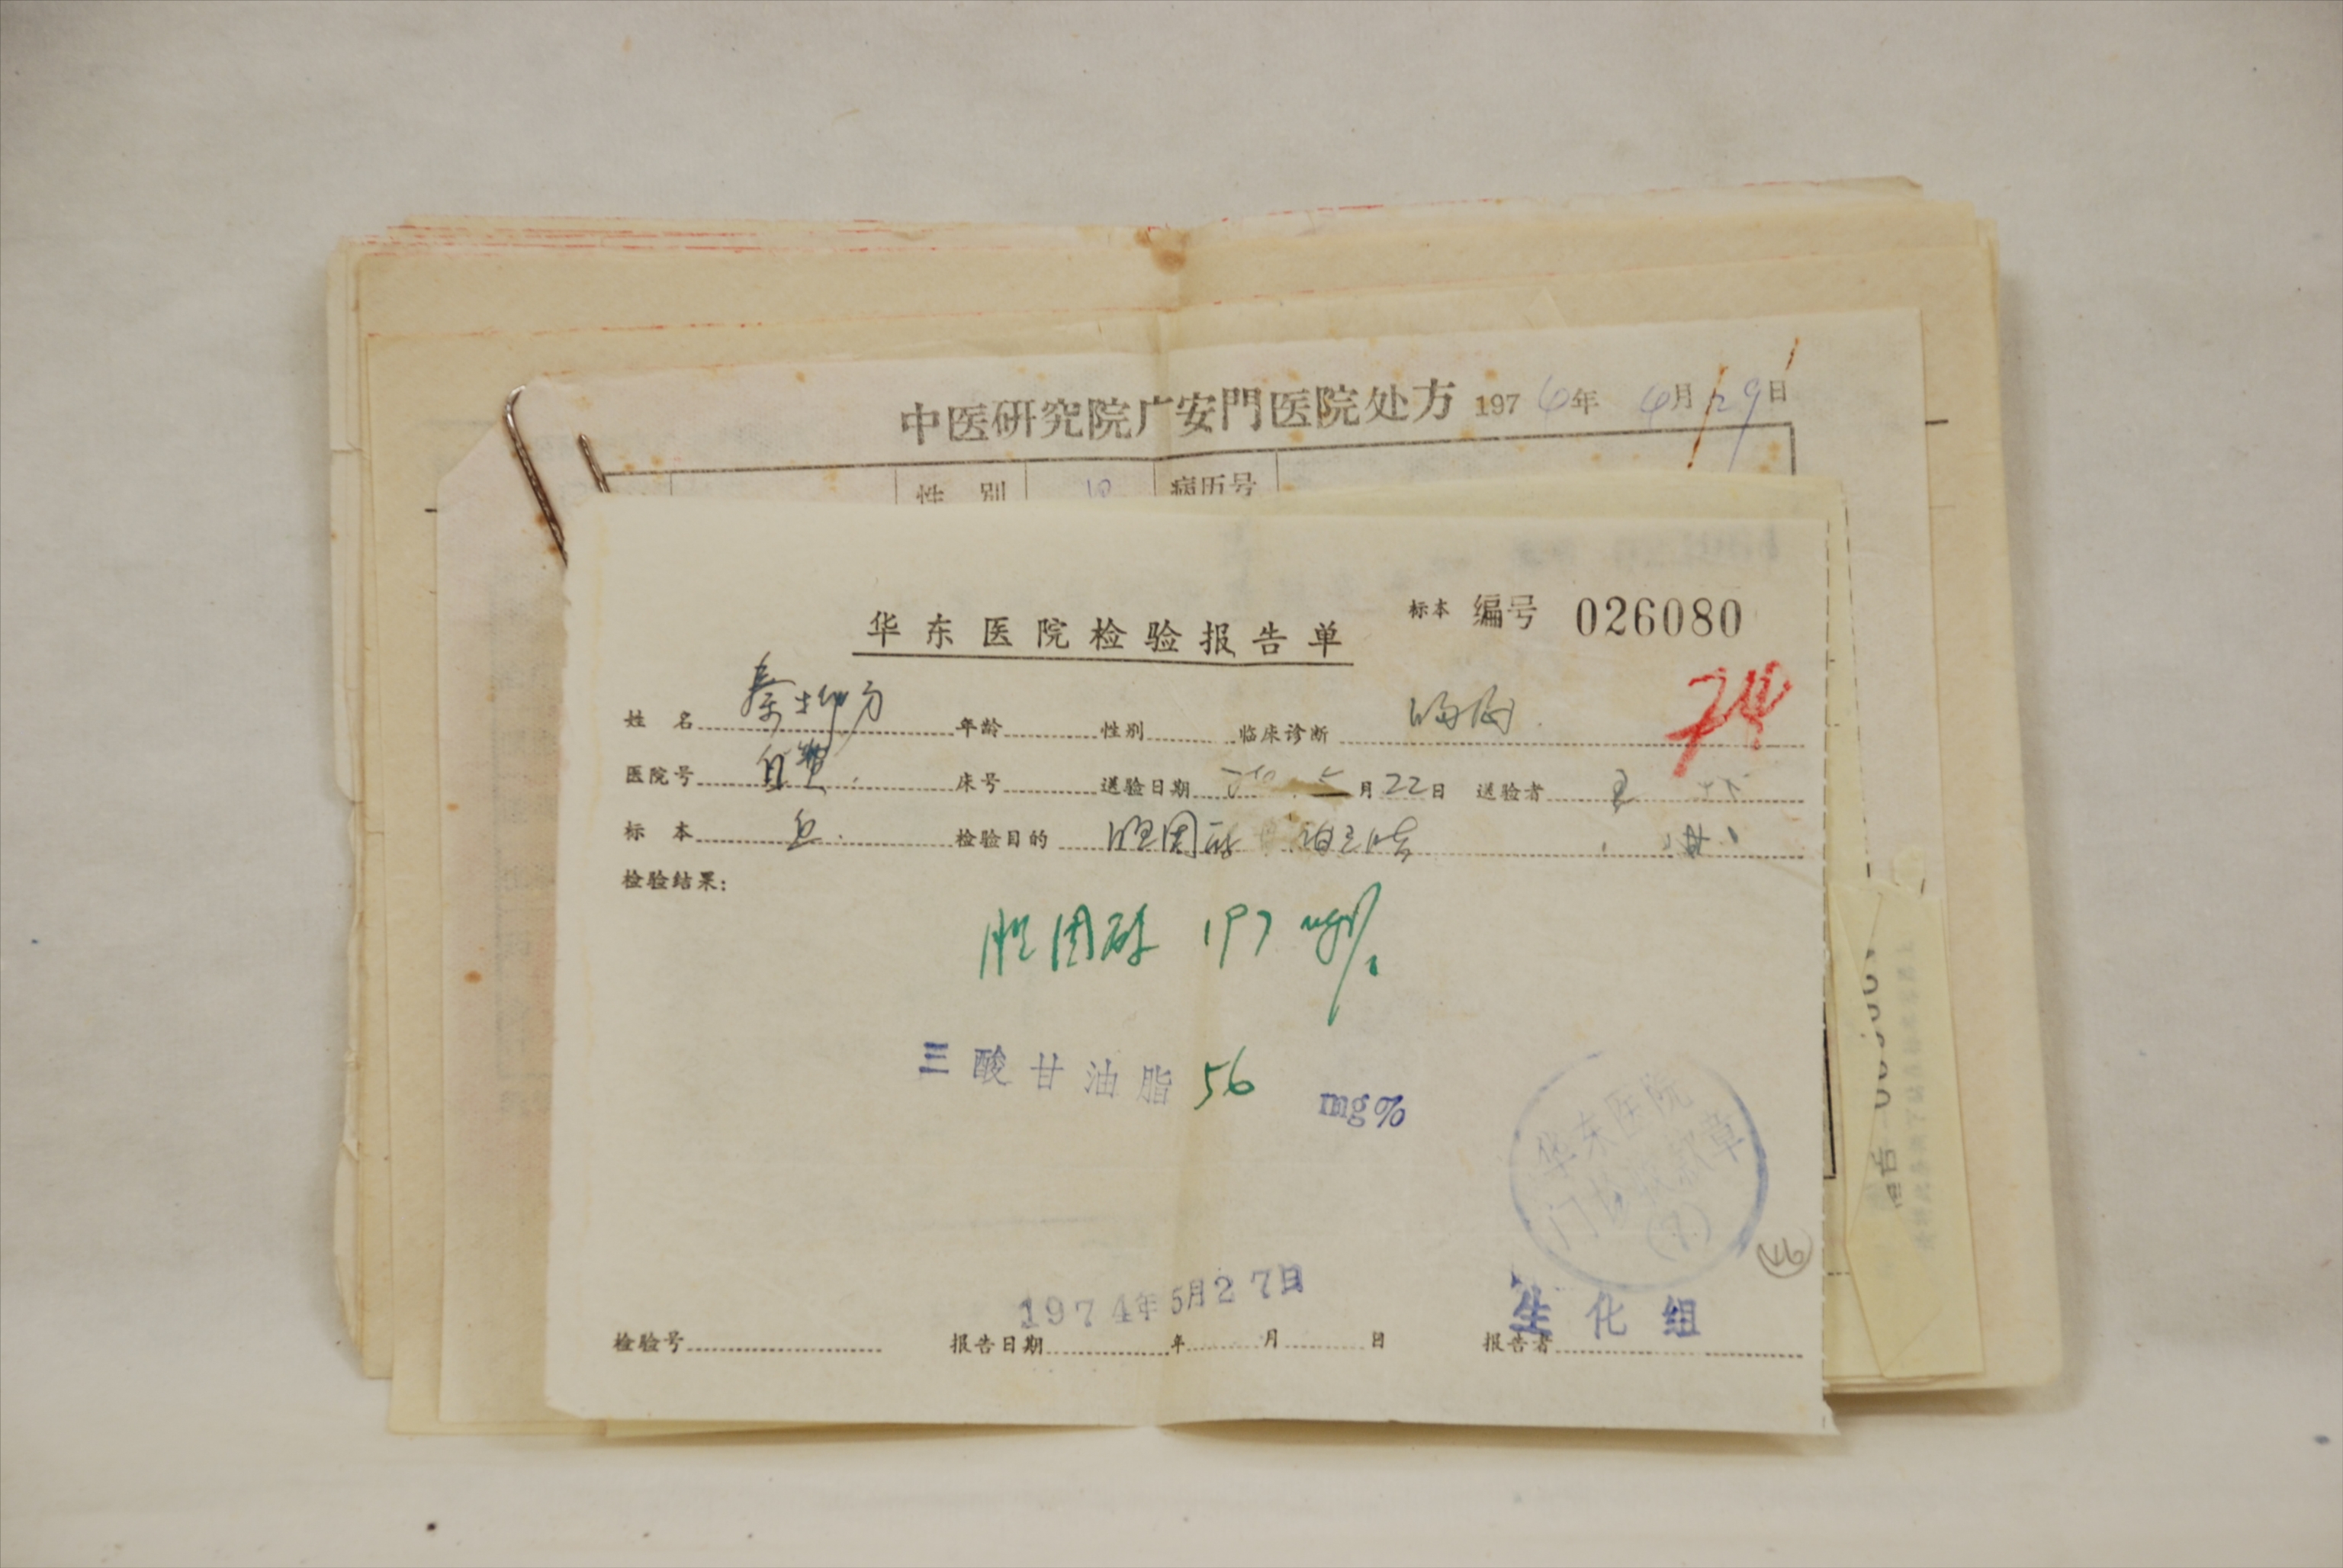 中医研究院广安門医院处方 1976年 6月29日
性 别 病历号
标本 编号 026080
华东医院检验报告单
姓 名 秦柳方 年龄 性别 临床诊断
医院号 自费. 床号 送验日期 5月22日 送验者
标 本 血. 检验目的 胆固醇
检验结果:
胆固醇 197 mg%
三酸甘油脂 56 mg%
华东医院
门
章
1974年5月27日
生化组
检验号 报告日期 年 月 日 报告者